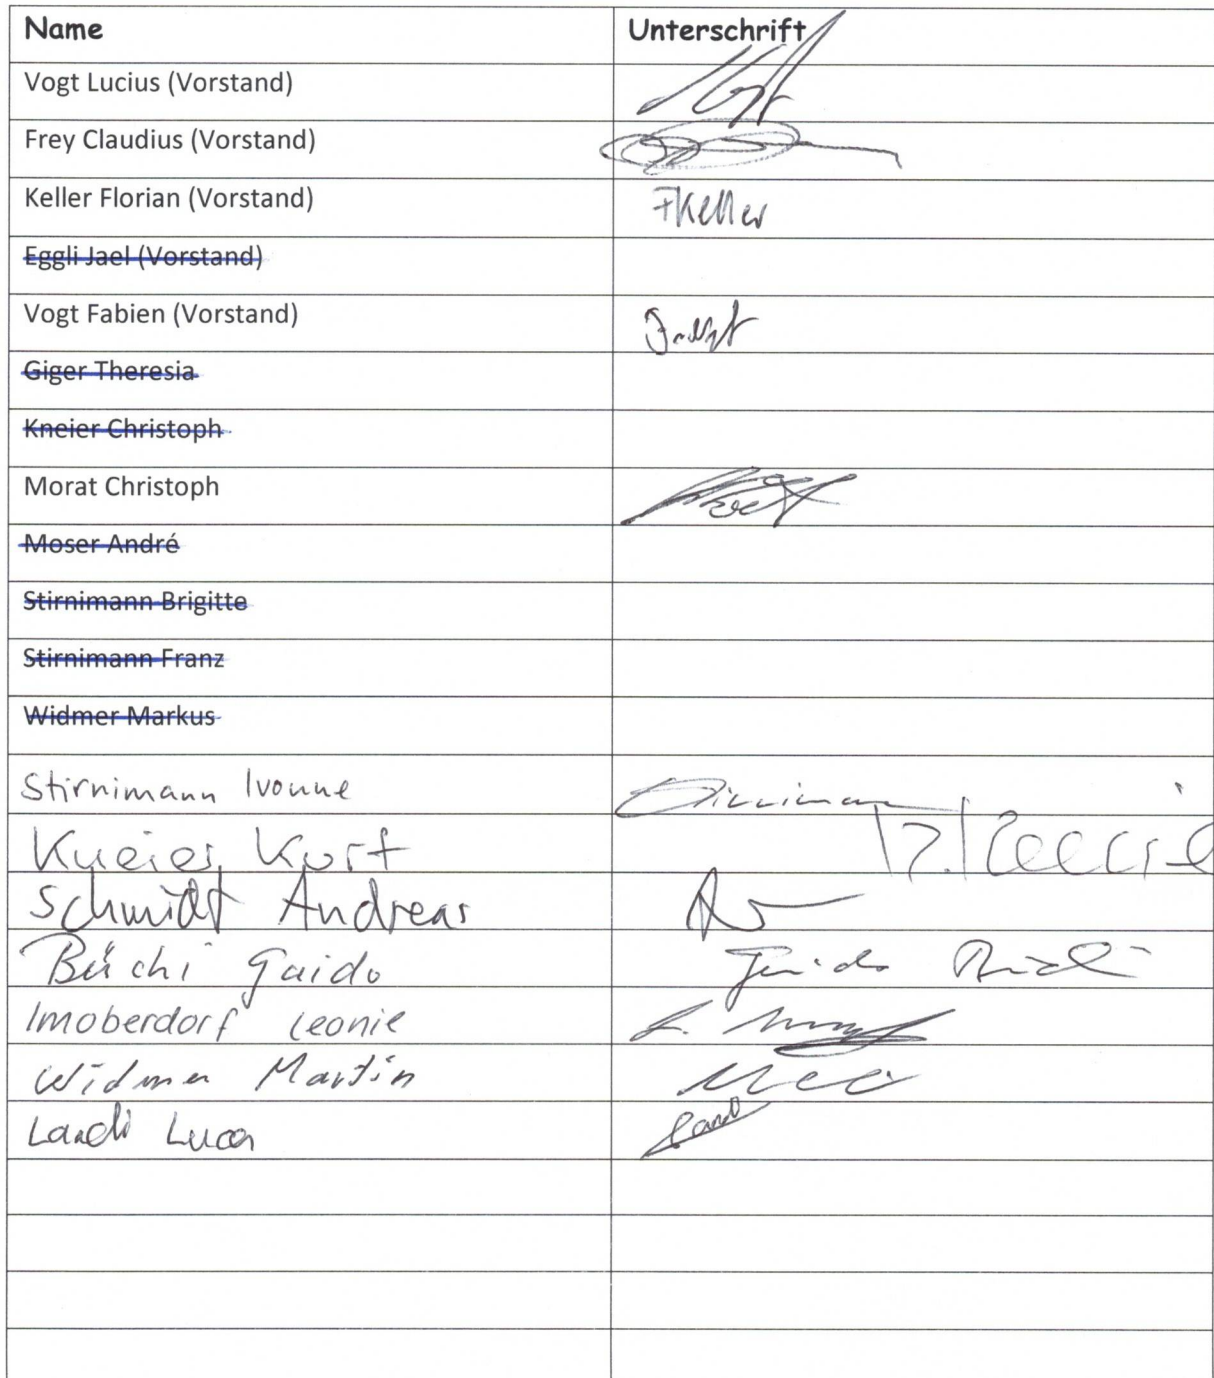 Name Unterschrift
Vogt Lucius (Vorstand)
Frey Claudius (Vorstand)
Keller Florian (Vorstand) FKeller
Eggli Jael (Vorstand)
Vogt Fabien (Vorstand)
Giger Theresia
Kneier Christoph
Morat Christoph
Moser André
Stirnimann Brigitte
Stirnimann Franz
Widmer Markus
Stirnimann Ivonne
Kneier Kurt
Schmidt Andreas
Büchi Guido Guido Büchi
Imoberdorf Leonie
Widmer Martin
Landi Luca